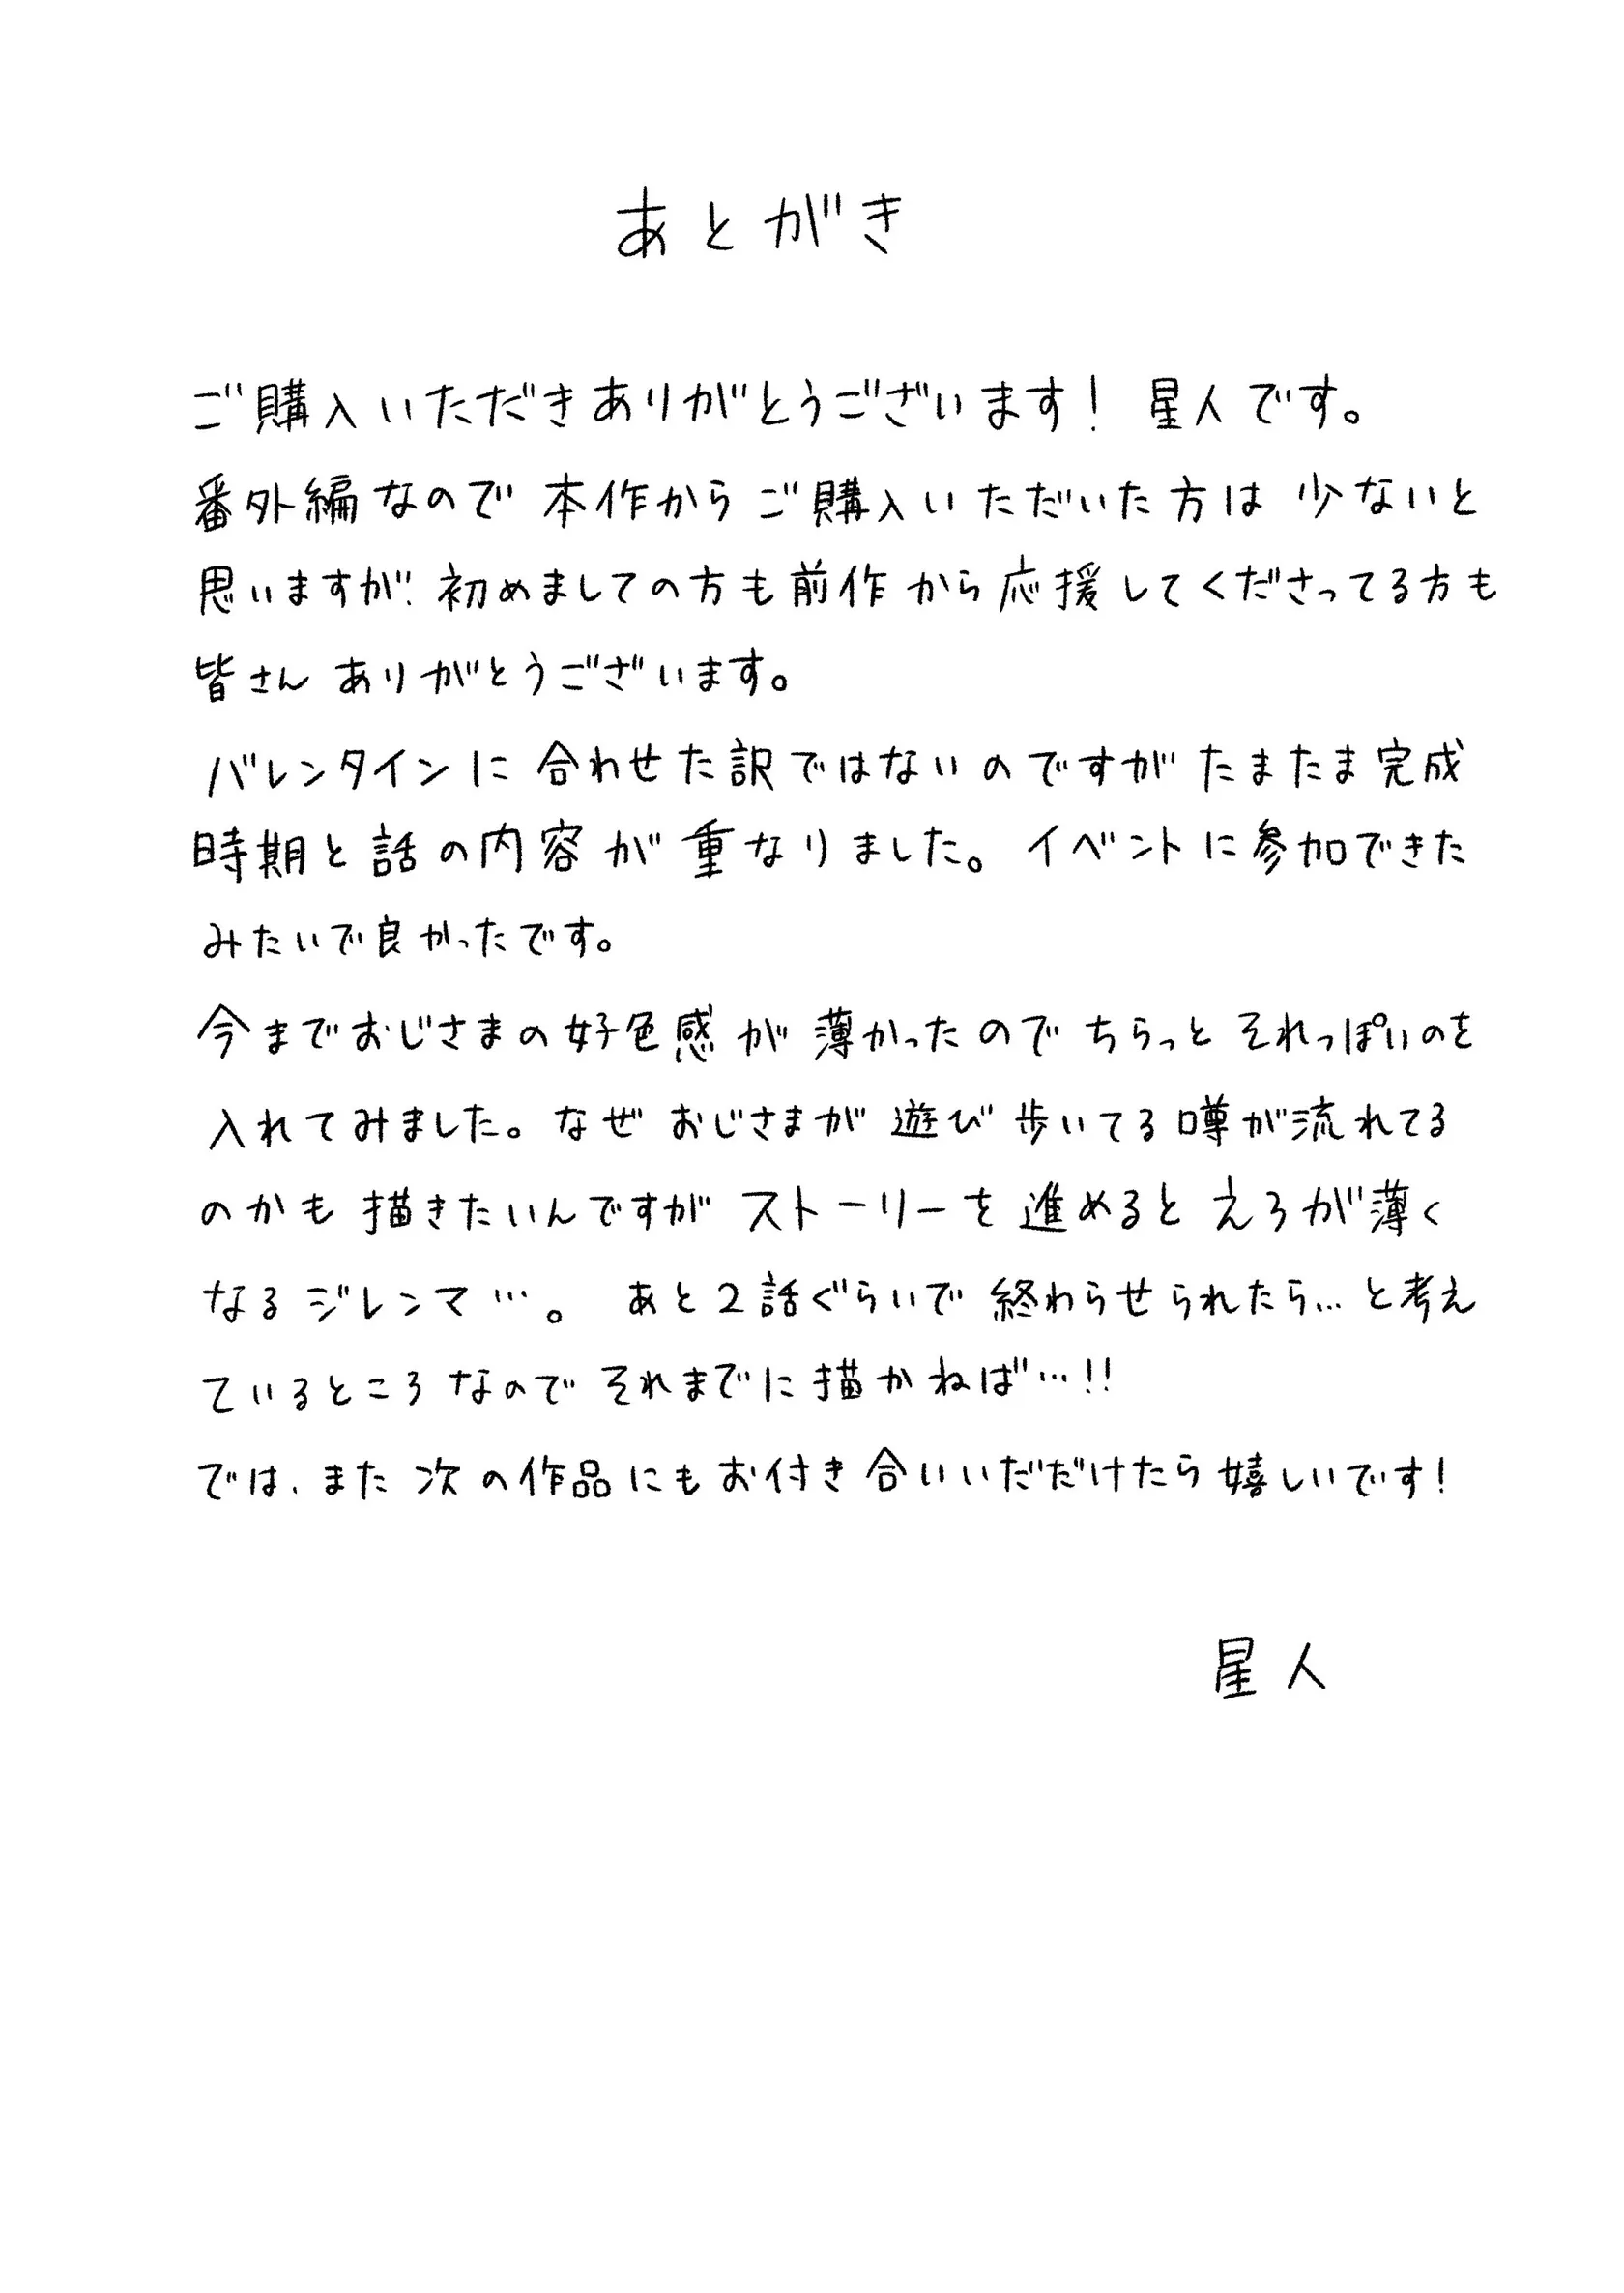 あとがき
ご購入いただきありがとうございます! 星人です。
番外編なので本作からご購入いただいた方は少ないと
思いますが初めましての方も前作から応援してくださってる方も
皆さんありがとうございます。
バレンタインに合わせた訳ではないのですがたまたま完成
時期と話の内容が重なりました。イベントに参加できた
みたいで良かったです。
今までおじさまの好色感が薄かったのでちらっとそれっぽいのを
入れてみました。なぜおじさまが遊び歩いてる噂が流れてる
のかも描きたいんですがストーリーを進めるとえろが薄く
なるジレンマ…。 あと2話ぐらいで終わらせられたら…と考え
ているところなのでそれまでに描かねば…!!
では、また次の作品にもお付き合いいだだけたら嬉しいです!
星人